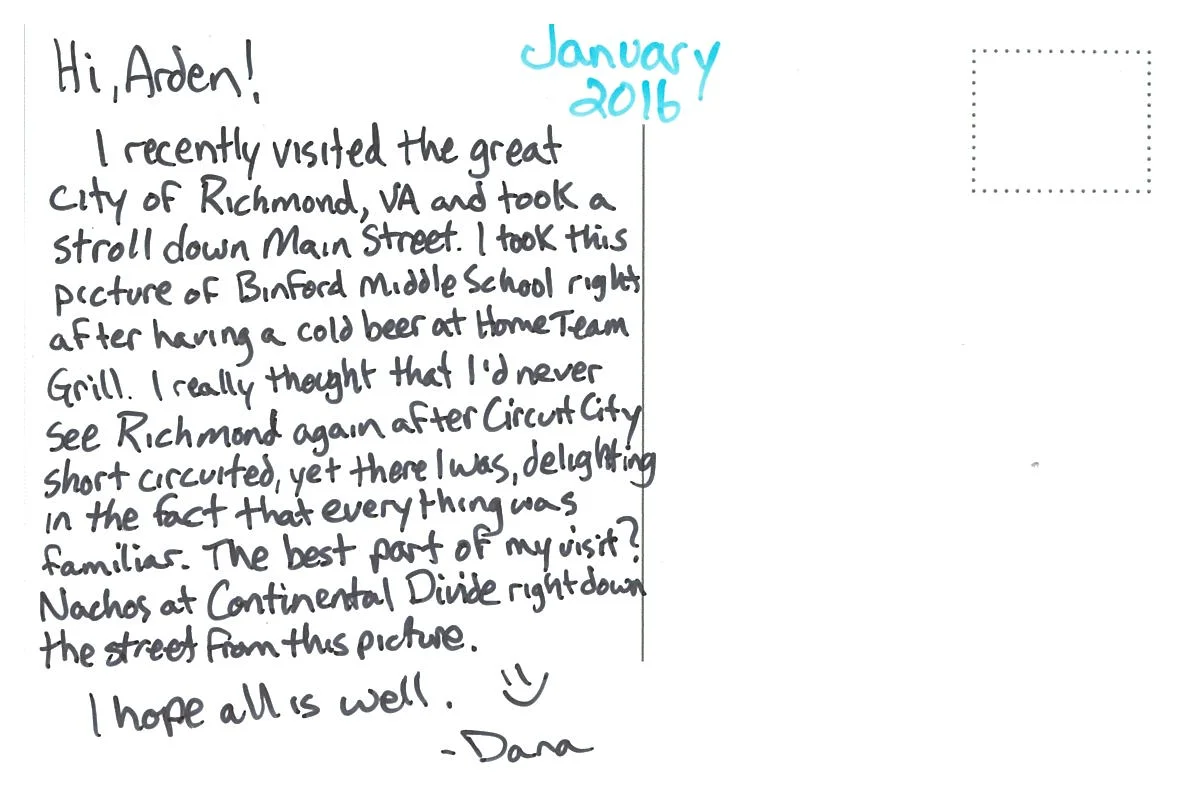 Hi, Arden!
January
2016
I recently visited the great
city of Richmond, VA and took a
stroll down Main Street. I took this
picture of Binford Middle School right
after having a cold beer at Home Team
Grill. I really thought that I'd never
see Richmond again after Circuit City
short circuited, yet there I was, delighting
in the fact that everything was
familiar. The best part of my visit?
Nachos at Continental Divide right down
the street from this picture.
I hope all is well.
-Dana